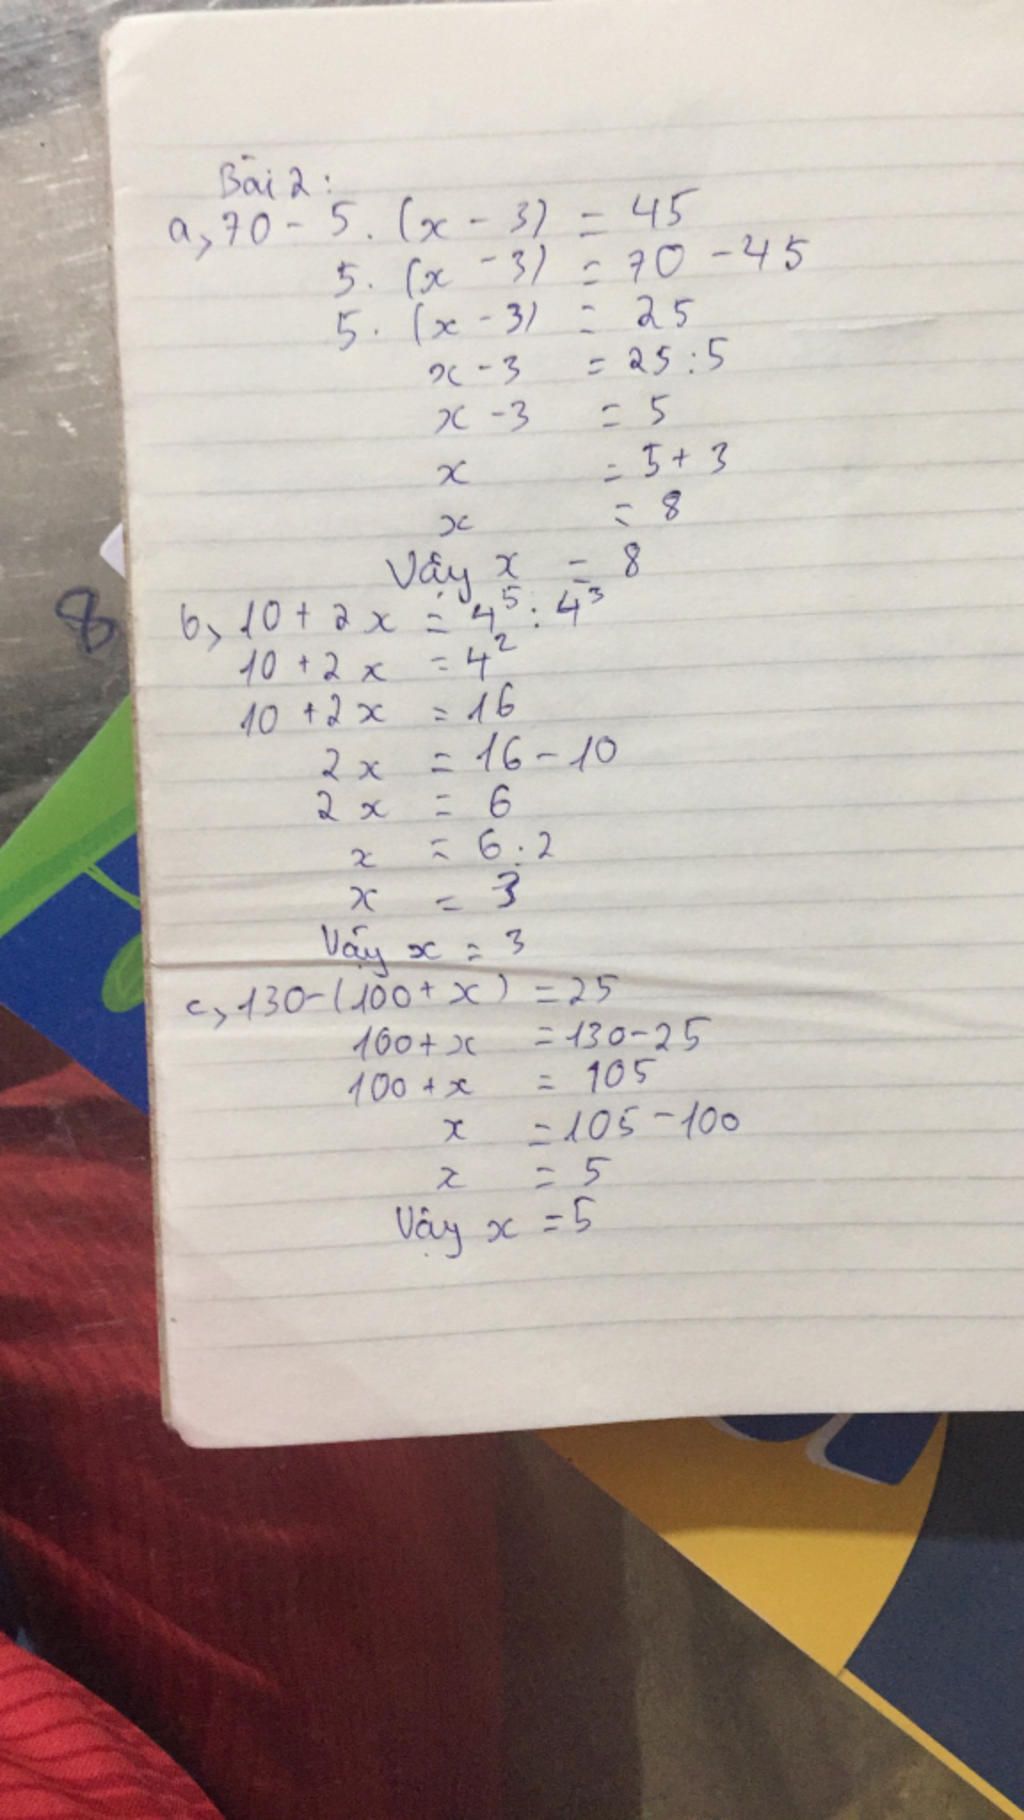 Bài 2:
a, 70 - 5. (x - 3) = 45
5. (x - 3) = 70 - 45
5. (x - 3) = 25
x - 3 = 25 : 5
x - 3 = 5
x = 5 + 3
x = 8
Vậy x = 8
8
b, 10 + 2x = 4⁵ : 4³
10 + 2x = 4²
10 + 2x = 16
2x = 16 - 10
2x = 6
x = 6 : 2
x = 3
Vậy x = 3
c, 130 - (100 + x) = 25
100 + x = 130 - 25
100 + x = 105
x = 105 - 100
x = 5
Vậy x = 5